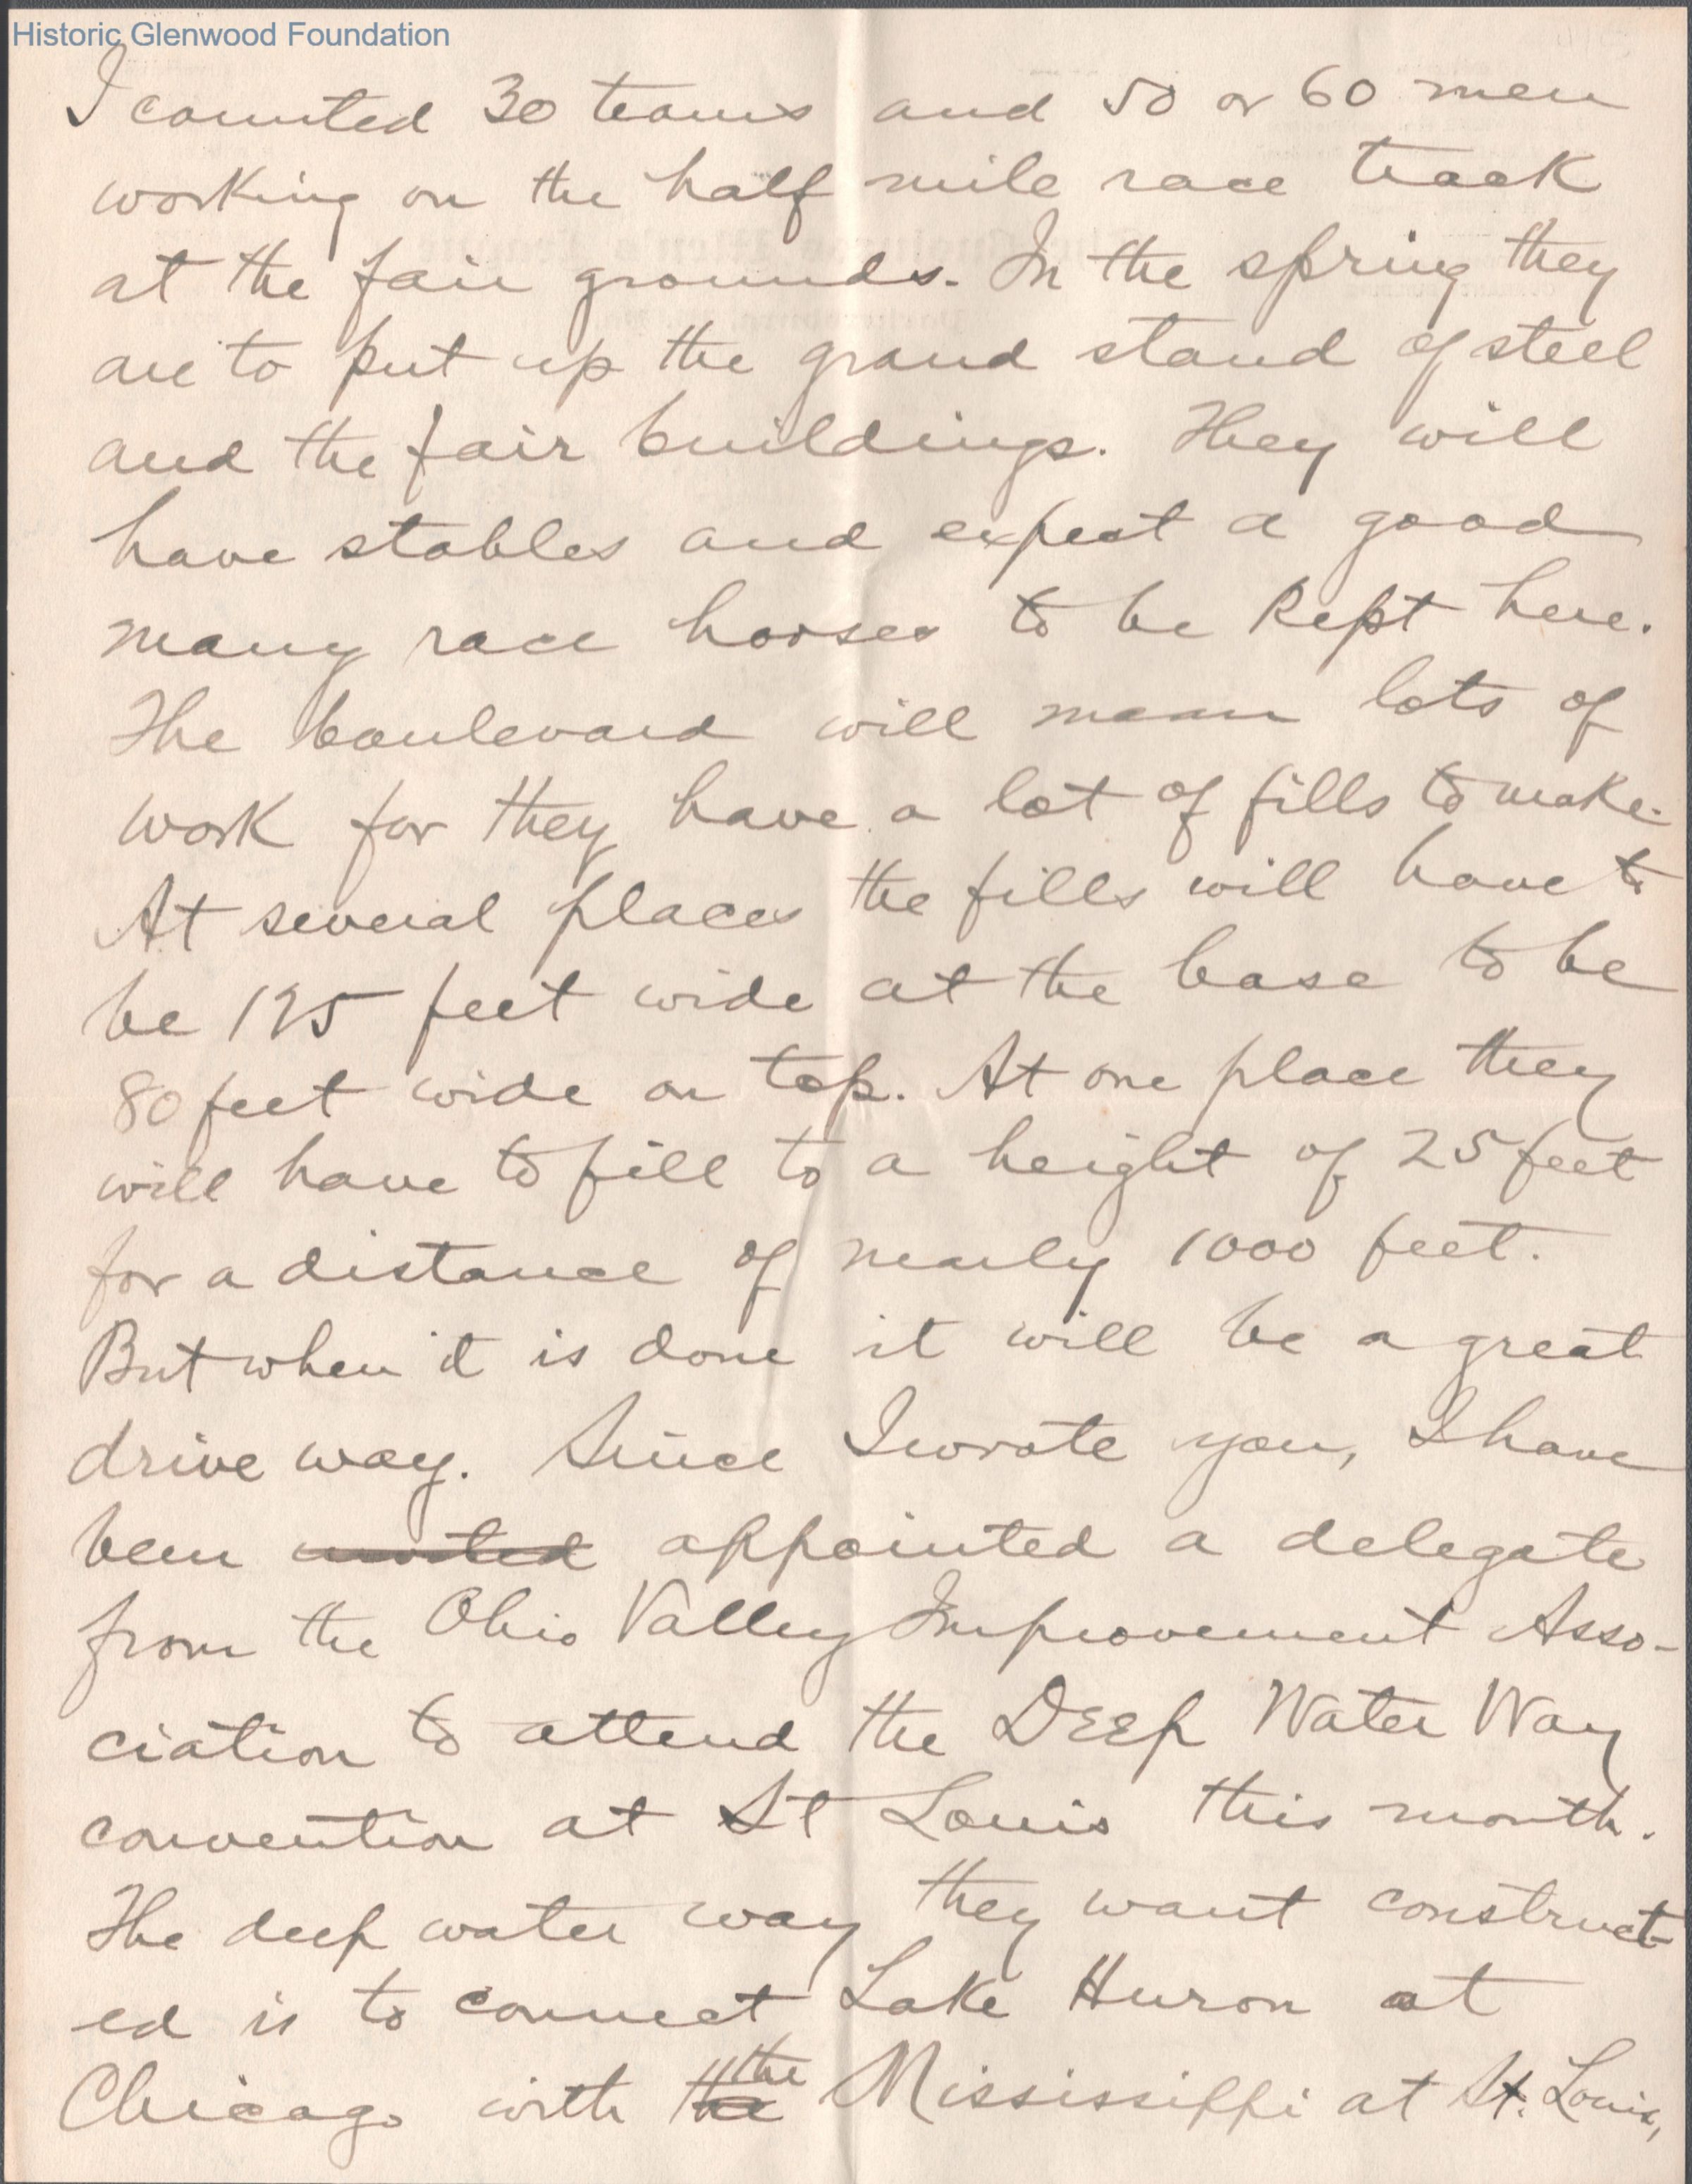 Historic Glenwood Foundation
I counted 30 teams and 50 or 60 men
working on the half mile race track
at the fair grounds. In the spring they
are to put up the grand stand of steel
and the fair buildings. They will
have stables and expect a good
many race horses to be kept here.
The boulevard will mean lots of
work for they have a lot of fills to make.
At several places the fills will have to
be 125 feet wide at the base to be
80 feet wide on top. At one place they
will have to fill to a height of 25 feet
for a distance of nearly 1000 feet.
But when it is done it will be a great
drive way. Since I wrote you, I have
been appointed a delegate
from the Ohio Valley Improvement Asso-
ciation to attend the Deep Water Way
convention at St Louis this month.
The deep water way they want construct-
ed is to connect Lake Huron at
Chicago with the the Mississippi at St. Louis,